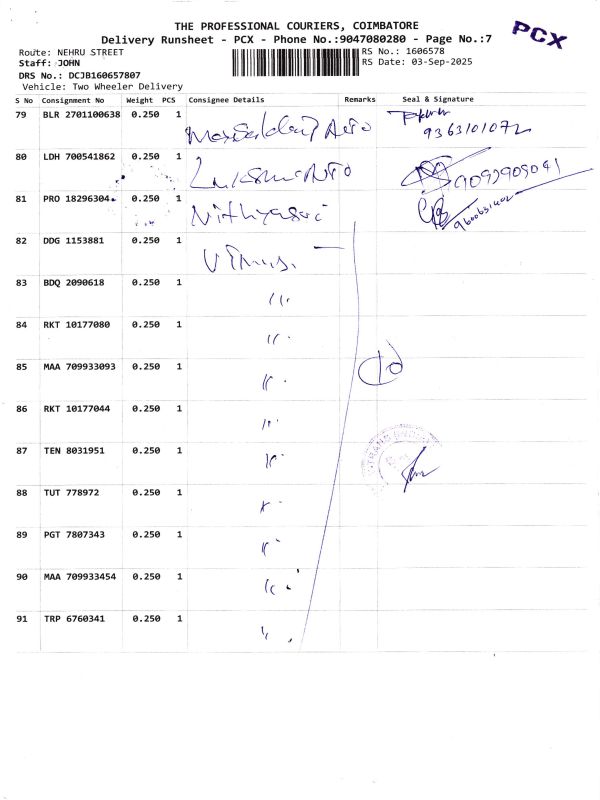 THE PROFESSIONAL COURIERS, COIMBATORE
PCX
Delivery Runsheet - PCX - Phone No.:9047080280 - Page No.:7
Route: NEHRU STREET RS No.: 1606578
Staff: JOHN RS Date: 03-Sep-2025
DRS No.: DCJB160657807
Vehicle: Two Wheeler Delivery
S No Consignment No Weight PCS Consignee Details Remarks Seal & Signature
79 BLR 2701100638 0.250 1 Auto
9363101072
80 LDH 700541862 0.250 1 Lakshmi Auto 9095909091
81 PRO 18296304 0.250 1 Nithyasri
82 DDG 1153881 0.250 1
83 BDQ 2090618 0.250 1 "
84 RKT 10177080 0.250 1 "
85 MAA 709933093 0.250 1 " 10
86 RKT 10177044 0.250 1 "
87 TEN 8031951 0.250 1 "
88 TUT 778972 0.250 1 "
89 PGT 7807343 0.250 1 "
90 MAA 709933454 0.250 1 "
91 TRP 6760341 0.250 1 "